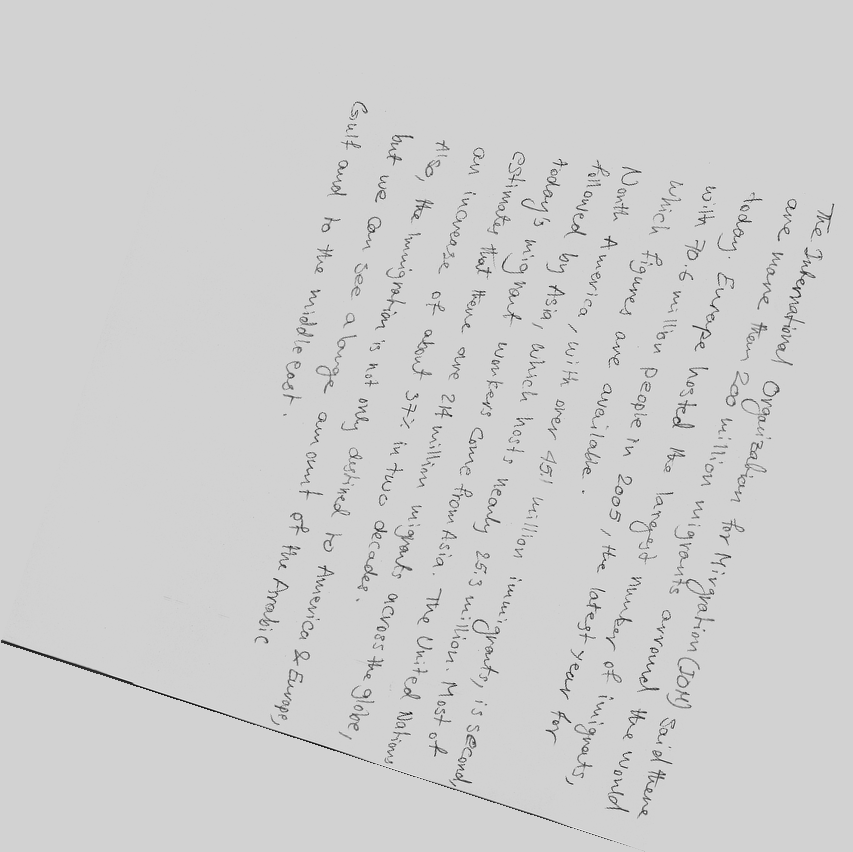 The International Organization for Mirgration (IOM) said there
are more than 200 million migrants arround the world
today. Europe hosted the largest number of imigrats,
with 70.6 million people in 2005, the latest year for
which figures are available.
North America, with over 45.1 million immigrants, is second,
followed by Asia, which hosts nearly 25.3 million. Most of
today's migrant workers come from Asia. The United Nations
estimates that there are 214 million migrants across the globe,
an increase of about 37% in two decades.
Also, the immigration is not only distined to America & Europe,
but we can see a large amount of the Arabic
Gulf and to the middle east.